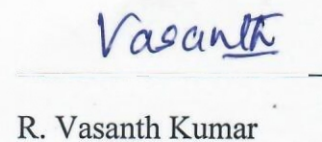 Vasanth
R. Vasanth Kumar